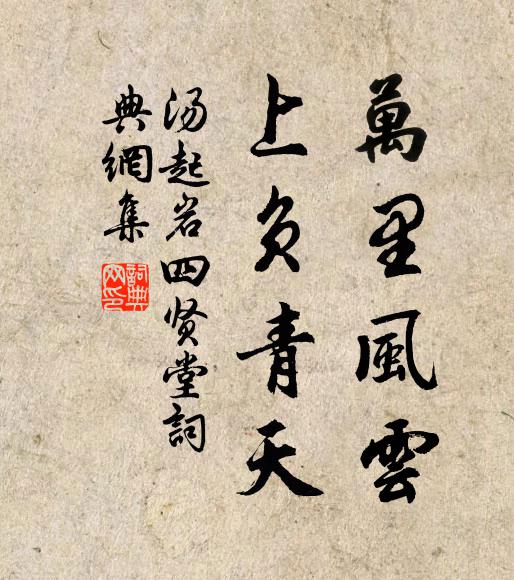 萬里風雲
上負青天
汤起岩四贤堂詞
典網集
詞典網印